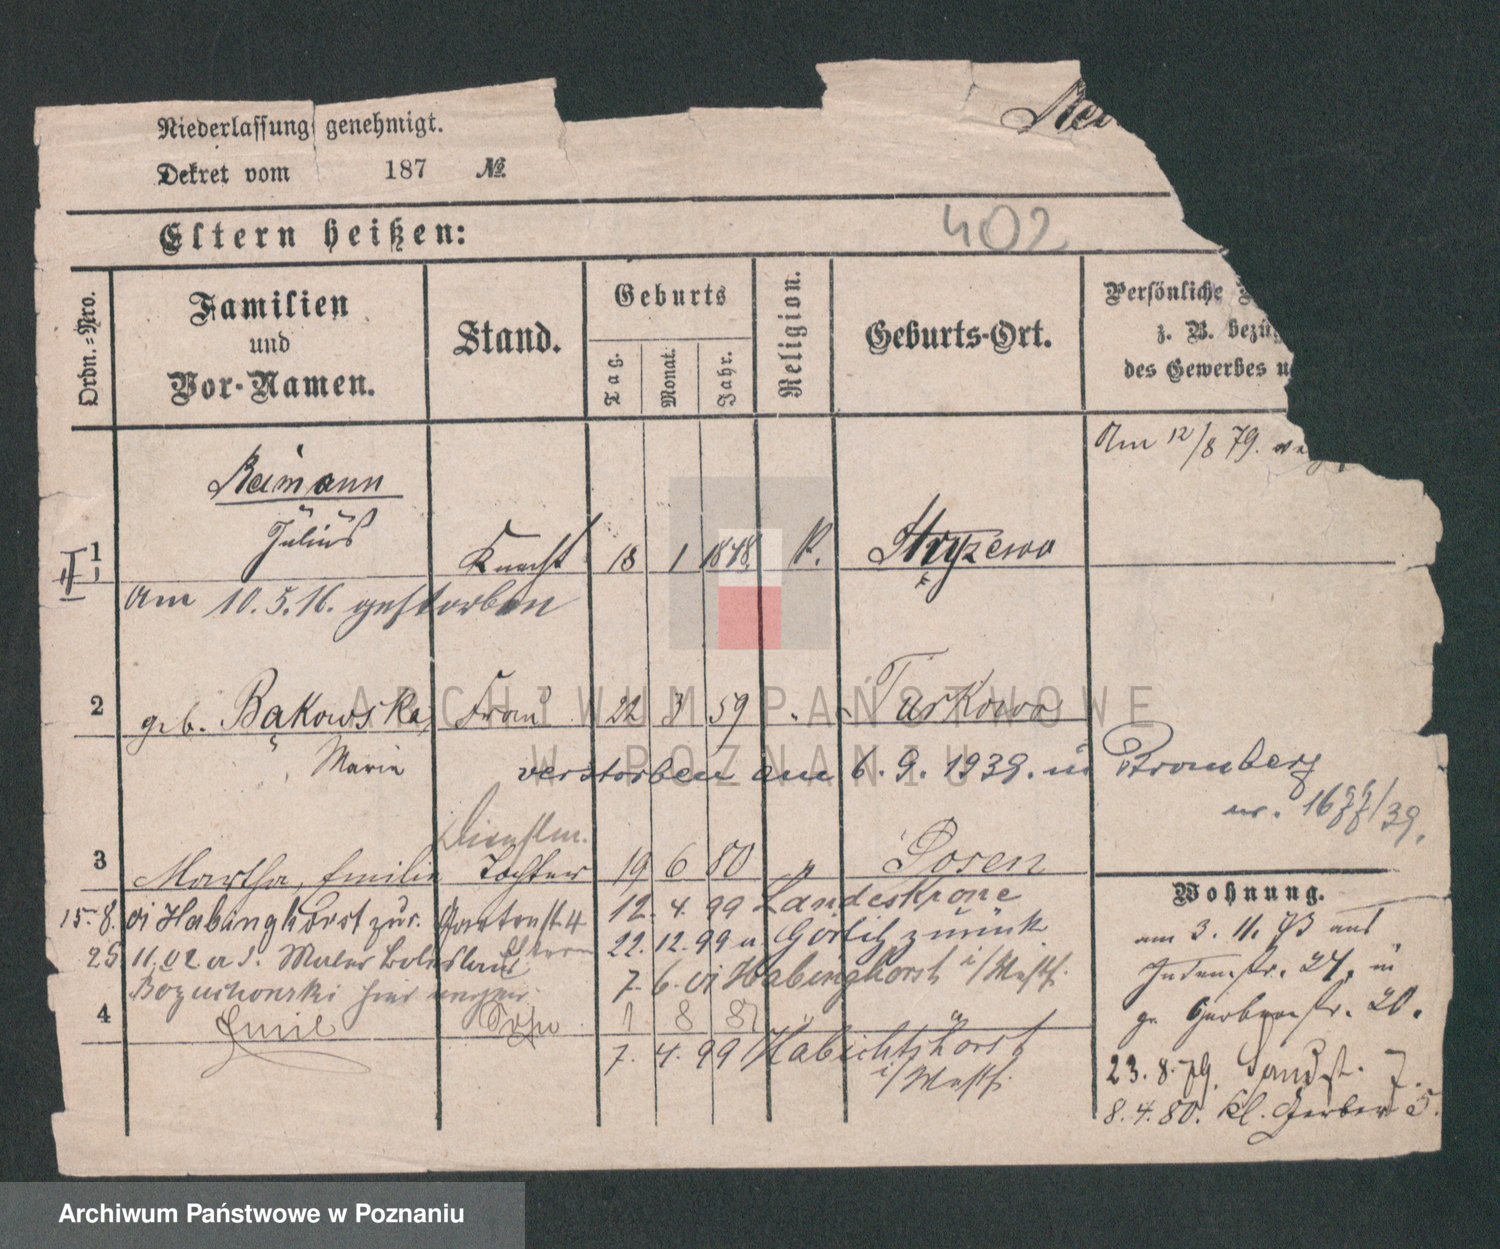 Niederlassung genehmigt.
Dekret vom 187 №
Eltern heißen:
402
Ordn.-Nro.
Familien
und
Vor-Namen.
Stand.
Geburts
Tag.
Monat.
Jahr.
Religion.
Geburts-Ort.
Persönliche
z. B. bezüg
des Gewerbes u
Am 12/8 79.
Reimann
Julius
1 Knecht 18 1 1848 K. Stryżewo
Am 10.5.16. gestorben
2 geb. Bąkowska, Frau 22 3 59 " Turkowo
Marie
verstorben am 6. 9. 1939. in Bromberg
nr. 1677/39.
Dienstm.
3 Martha, Emilie Tochter 19 6 80 " Posen
12. 4. 99 Landeskrone
15.8. 01 Habinghorst zur. Gartenst 4
22. 12. 99 a Görlitz zurück
25 11.02 a d. Maler Boleslaus
7. 6. 01 Habinghorst i/Westf.
4 Emil Sohn 1 8 82
7. 4. 99 Habichtshorst
i/Westf.
Wohnung.
am 3. 11. 83 aus
Judenstr. 27. in
gr Gerberstr. 20.
23. 8. 79. Sandst. 7.
8. 4. 80. kl. Gerber 5.
ARCHIWUM PAŃSTWOWE
W POZNANIU
Archiwum Państwowe w Poznaniu